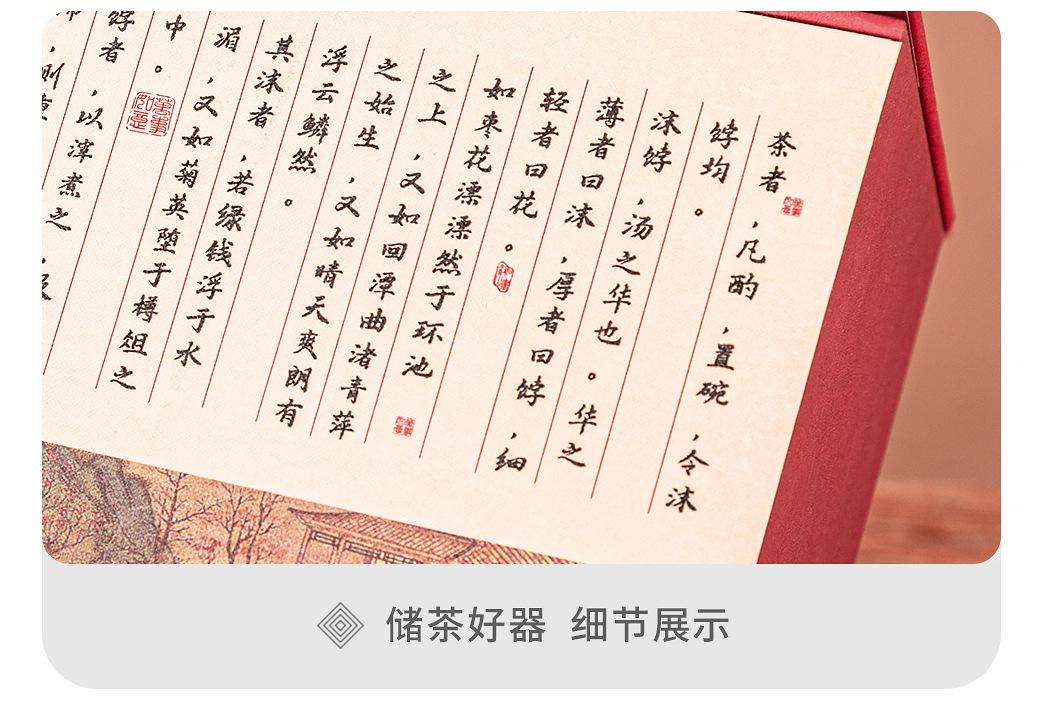 茶者
，凡酌，置碗，令沫
饽均。
沫饽，汤之华也。华之
薄者曰沫，厚者曰饽，细
轻者曰花。
如枣花漂漂然于环池
之上，又如回潭曲渚青萍
之始生，又如晴天爽朗有
浮云鳞然。
其沫者，若绿钱浮于水
湄，又如菊英堕于樽俎之
中。
饽者，以滓煮之
，则重
储茶好器 细节展示